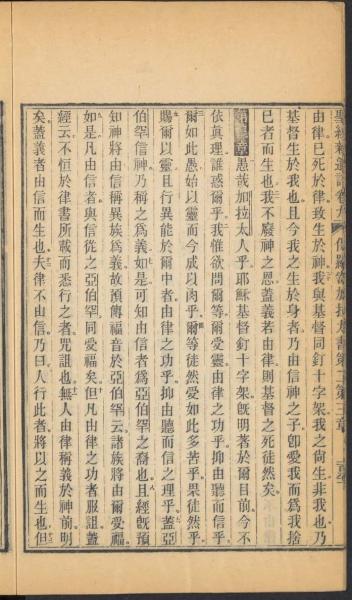 聖經新遺詔卷九 保羅寄加拉太書第二第三章
由律已死於律致生於神我與基督同釘十字架我之尙生非我也乃
基督生於我也且今我之生於身者乃由信神之子卽愛我而爲我捨
已者而生也我不廢神之恩蓋義若由律則基督之死徒然矣
第三章 愚哉加拉太人乎耶穌基督釘十字架旣明著於爾目前今不
依眞理誰惑爾乎我惟欲問爾等爾受靈由律之功乎抑由聽而信乎
爾如此愚始以靈而今成以肉乎爾等徒然受如此多苦乎果徒然乎
賜爾以靈且行異能於爾中者由律之功乎抑由聽而信之理乎蓋亞
伯罕信神乃稱之爲義如是可知由信者爲亞伯罕之裔也且經旣預
知神將由信稱異族爲義故預傳福音於亞伯罕云諸族將由爾受福
如是凡由信者與信從之亞伯罕同受福矣但凡由律之功者服詛蓋
經云不恒於律書所載而悉行之者咒詛也無人由律稱義於神前明
矣蓋義者由信而生也夫律不由信乃曰人行此者將以之而生也但